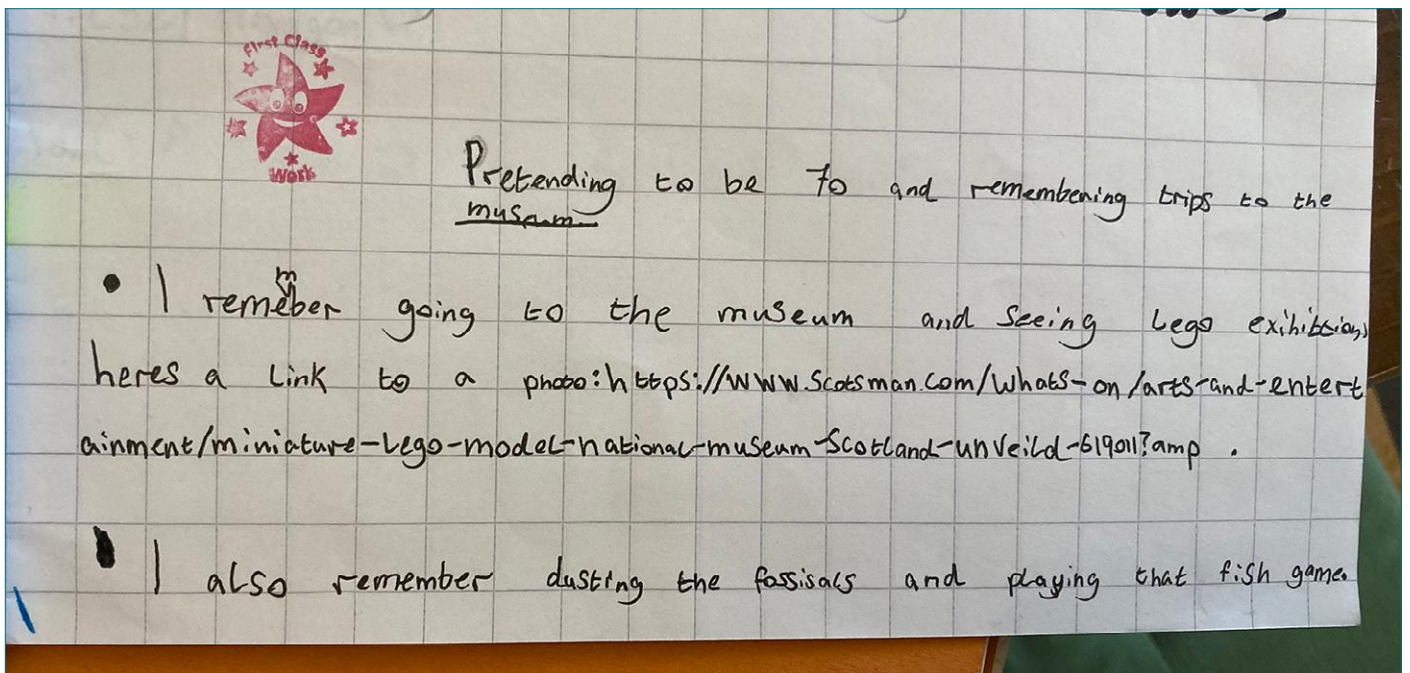 First Class
Work
Pretending to be 70 and remembening trips to the
museum
I remember going to the museum and seeing Lego exihibtsions
heres a Link to a photo: https://www.scotsman.com/whats-on/arts-and-entert
ainment/miniature-Lego-model-national-museum-Scotland-unveild-619011?amp .
I also remember dusting the fossisals and playing that fish game.